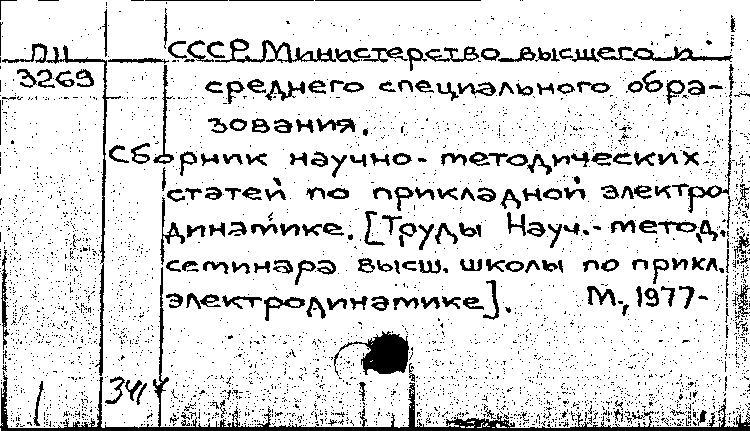 П11
3269
СССР. Министерство высшего и
среднего специального обра-
зования.
Сборник научно-методических
статей по прикладной электро-
динамике. [Труды Науч.-метод.
семинара высш. школы по прикл.
электродинамике]. М., 1977-